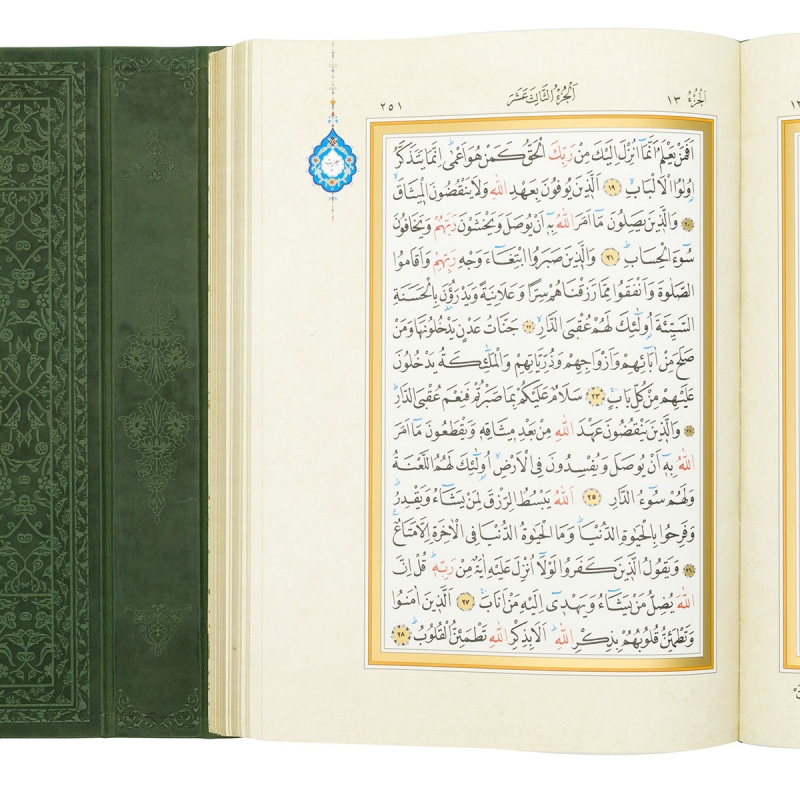 الجزء ١٣
اَلْجُزْءُ الثَّالِثَ عَشَرَ
٢٥١
اَفَمَنْ يَعْلَمُ اَنَّمَٓا اُنْزِلَ اِلَيْكَ مِنْ رَبِّكَ الْحَقُّ كَمَنْ هُوَ اَعْمٰىۜ اِنَّمَا يَتَذَكَّرُ
اُو۬لُوا الْاَلْبَابِۙ ١٩ اَلَّذ۪ينَ يُوفُونَ بِعَهْدِ اللّٰهِ وَلَا يَنْقُضُونَ الْم۪يثَاقَۙ
٢٠ وَالَّذ۪ينَ يَصِلُونَ مَٓا اَمَرَ اللّٰهُ بِه۪ٓ اَنْ يُوصَلَ وَيَخْشَوْنَ رَبَّهُمْ وَيَخَافُونَ
سُٓوءَ الْحِسَابِۜ ٢١ وَالَّذ۪ينَ صَبَرُوا ابْتِغَٓاءَ وَجْهِ رَبِّهِمْ وَاَقَامُوا
الصَّلٰوةَ وَاَنْفَقُوا مِمَّا رَزَقْنَاهُمْ سِرًّا وَعَلَانِيَةً وَيَدْرَؤُ۫نَ بِالْحَسَنَةِ
السَّيِّئَةَ اُو۬لٰٓئِكَ لَهُمْ عُقْبَى الدَّارِۙ ٢٢ جَنَّاتُ عَدْنٍ يَدْخُلُونَهَا وَمَنْ
صَلَحَ مِنْ اٰبَٓائِهِمْ وَاَزْوَاجِهِمْ وَذُرِّيَّاتِهِمْ وَالْمَلٰٓئِكَةُ يَدْخُلُونَ
عَلَيْهِمْ مِنْ كُلِّ بَابٍۚ ٢٣ سَلَامٌ عَلَيْكُمْ بِمَا صَبَرْتُمْ فَنِعْمَ عُقْبَى الدَّارِۜ
٢٤ وَالَّذ۪ينَ يَنْقُضُونَ عَهْدَ اللّٰهِ مِنْ بَعْدِ م۪يثَاقِه۪ وَيَقْطَعُونَ مَٓا اَمَرَ
اللّٰهُ بِه۪ٓ اَنْ يُوصَلَ وَيُفْسِدُونَ فِي الْاَرْضِۙ اُو۬لٰٓئِكَ لَهُمُ اللَّعْنَةُ
وَلَهُمْ سُٓوءُ الدَّارِ ٢٥ اَللّٰهُ يَبْسُطُ الرِّزْقَ لِمَنْ يَشَٓاءُ وَيَقْدِرُۜ
وَفَرِحُوا بِالْحَيٰوةِ الدُّنْيَاۜ وَمَا الْحَيٰوةُ الدُّنْيَا فِي الْاٰخِرَةِ اِلَّا مَتَاعٌ۟
٢٦ وَيَقُولُ الَّذ۪ينَ كَفَرُوا لَوْلَٓا اُنْزِلَ عَلَيْهِ اٰيَةٌ مِنْ رَبِّه۪ۜ قُلْ اِنَّ
اللّٰهَ يُضِلُّ مَنْ يَشَٓاءُ وَيَهْد۪ٓي اِلَيْهِ مَنْ اَنَابَۚ ٢٧ اَلَّذ۪ينَ اٰمَنُوا
وَتَطْمَئِنُّ قُلُوبُهُمْ بِذِكْرِ اللّٰهِۜ اَلَا بِذِكْرِ اللّٰهِ تَطْمَئِنُّ الْقُلُوبُۜ ٢٨